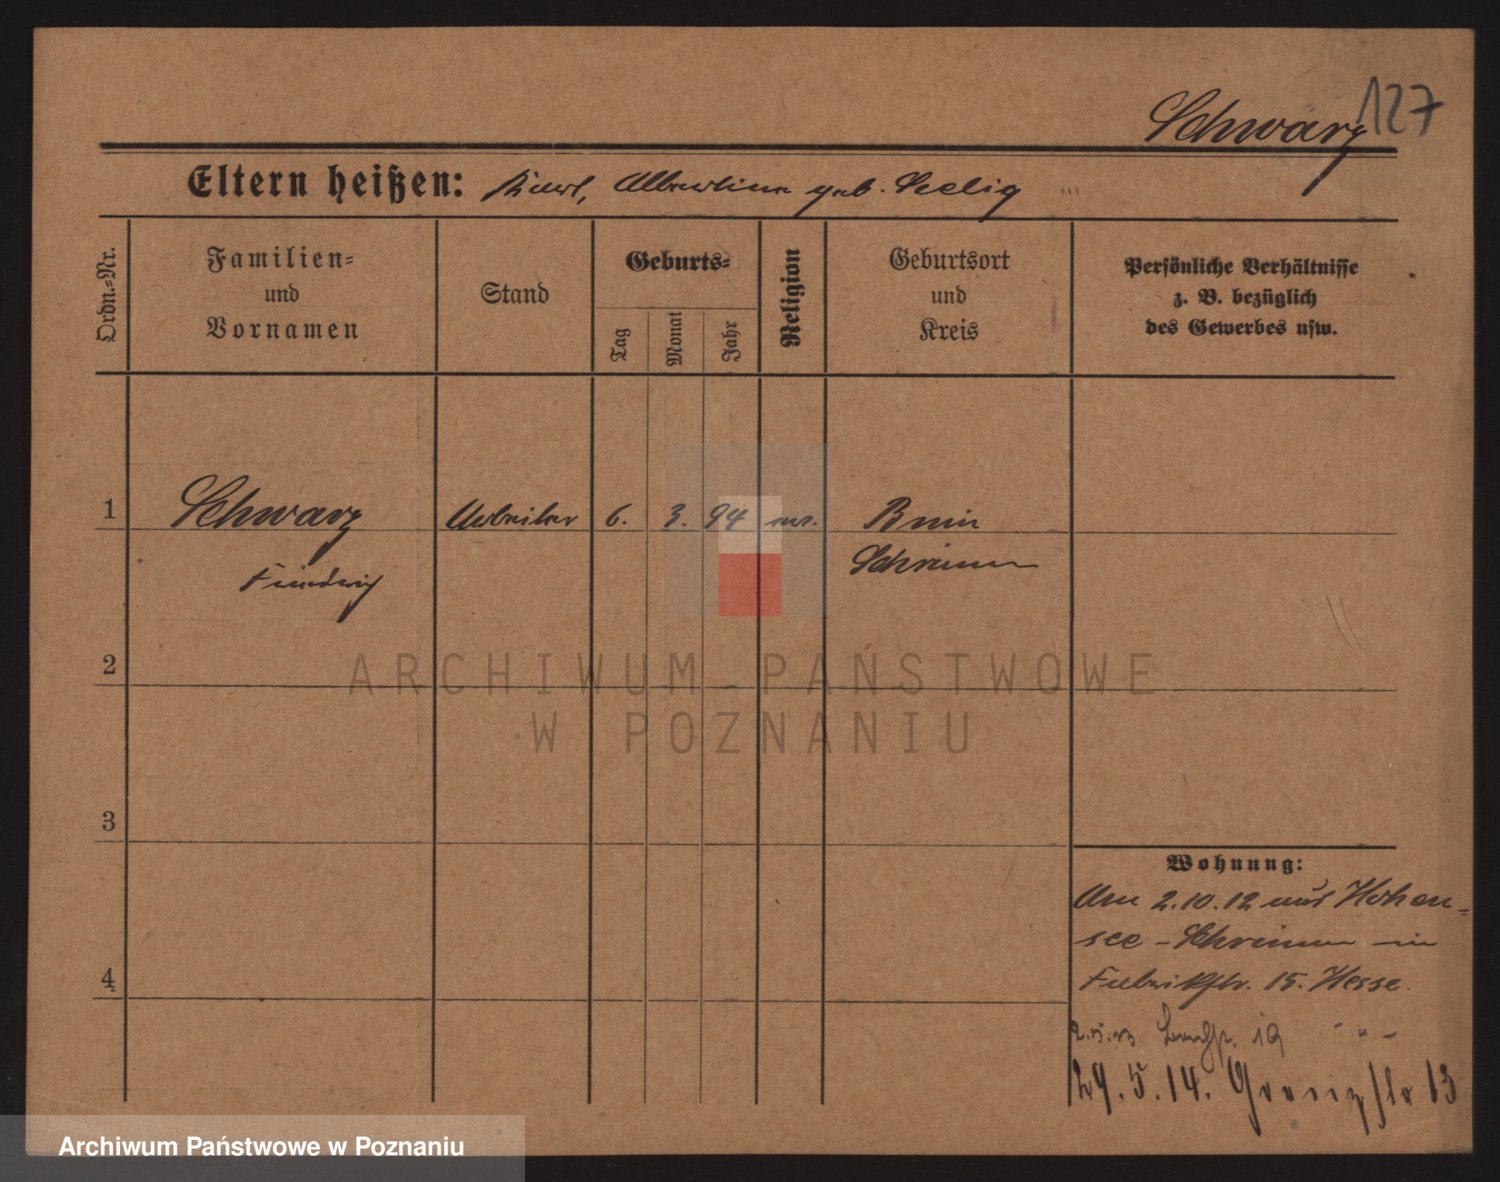 127
Schwarz
Eltern heißen: Karl, Albertine geb. Seelig
Ordn.-Nr.
Familien-
und
Vornamen
Stand
Geburts-
Tag
Monat
Jahr
Religion
Geburtsort
und
Kreis
Persönliche Verhältnisse
z. B. bezüglich
des Gewerbes usw.
1
Schwarz
Friedrich
Arbeiter
6.
3.
94
Bnin
Schrimm
2
3
4
Wohnung:
Am 2.10.12 aus Hohen-
see-Schrimm in
Fabrikstr. 15. Hesse.
19 " -
29.5.14. Grenzstr 13
ARCHIWUM PAŃSTWOWE
W POZNANIU
Archiwum Państwowe w Poznaniu